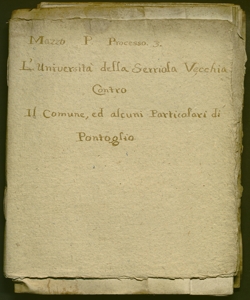 Mazzo P Processo 3.
L'Università della Seriola Vecchia
Contro
Il Comune, ed alcuni Particolari di
Pontoglio